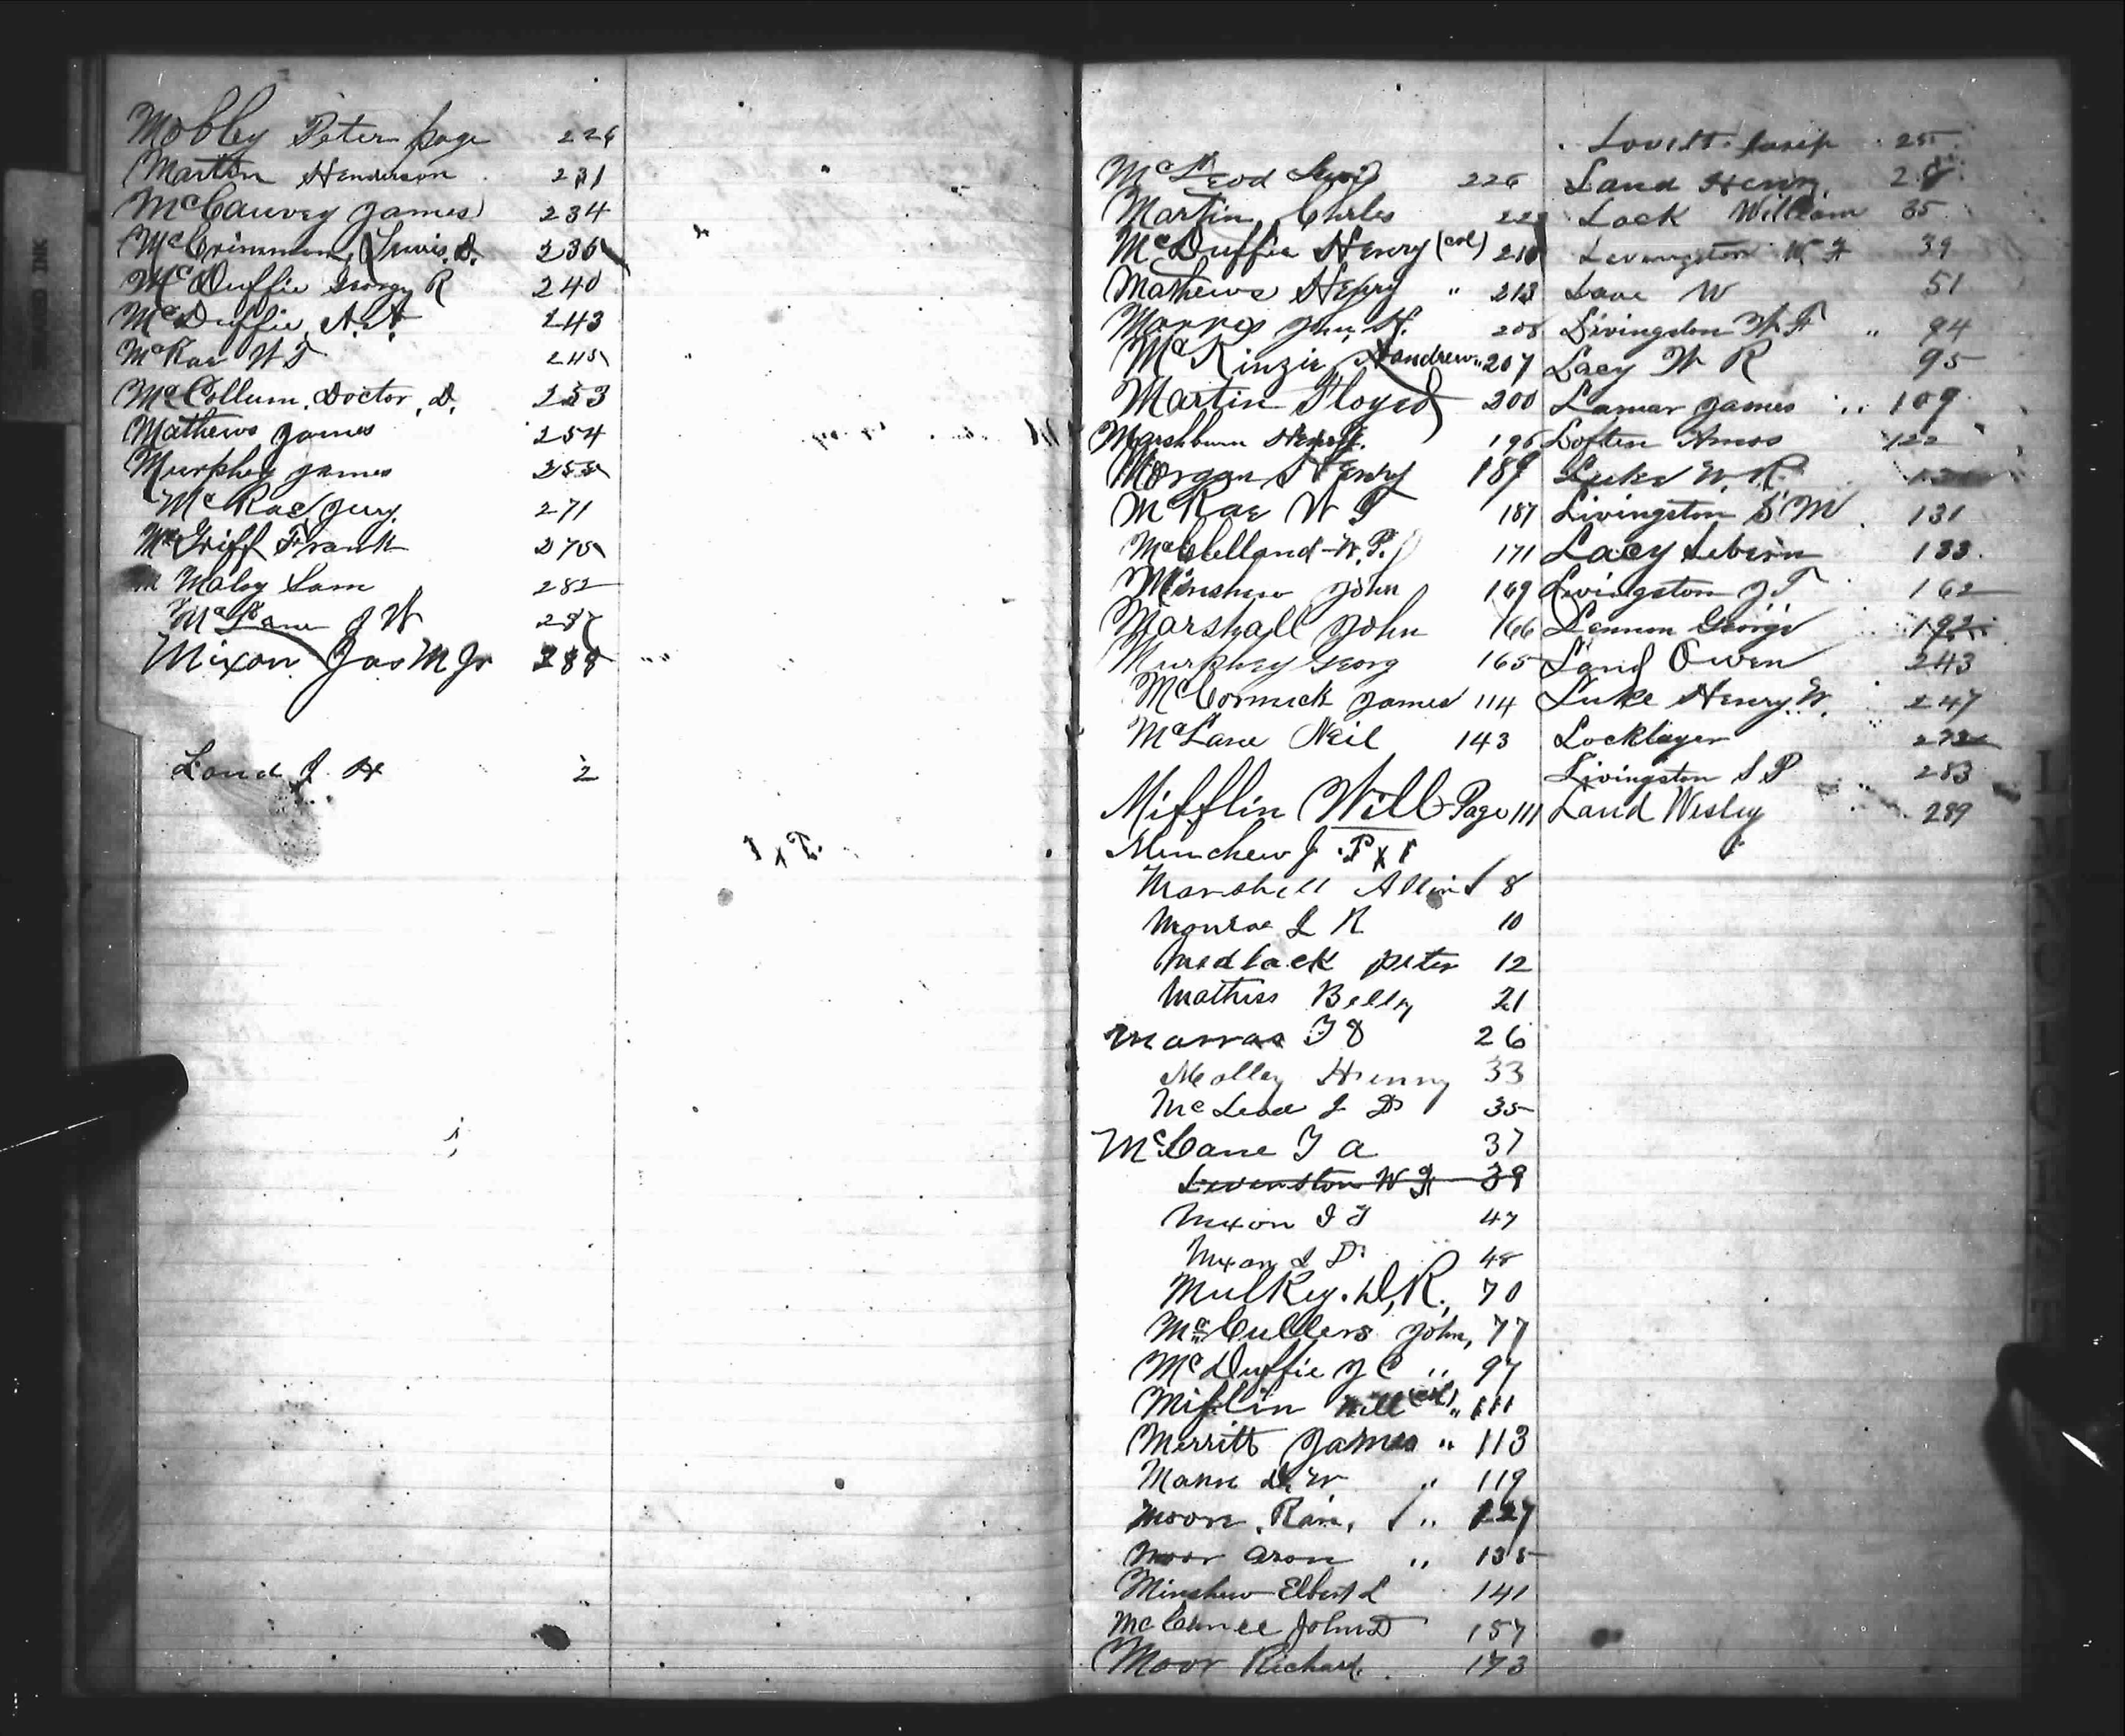 Mobley Peter page 226
Martin Henderson 231
McCauvey James 234
McCrimmon, Lewis. D. 236
McDuffie George R 240
McDuffie, A. A. 243
McRae W T 245
McCollum, Doctor, D. 253
Mathews James 254
Murphey James 255
McRae Jury 271
McGriff Frank 275
Maloy Sam 282
McLane J W 287
Mixon Jas M Jr 288
Land J. H 2
McLeod 226
Martin Charles
McDuffie Henry (col) 210
Mathews Henry " 213
Morris John, H. 208
McKinzie, Andrew " 207
Martin Floyed 200
Marshburn Henry. 196
Morgan Henry 189
McRae W T 187
McClelland W. P. 171
Minshew John 169
Marshall John 166
Murphey Georg 165
McCormick James 114
McLane Neil 143
Mifflin Will Page 111
Minchew J. P X 1
Marshell Allin 8
Monroe J R 10
Medlack Peter 12
Mathiss Belly 21
Marras 26
Molley Henny 33
McLeod J D 35
McCane T A 37
Levenston W F 39
Mixon J T 47
Mixon J D. 48
Mulkey. D, R. 70
McCullers John, 77
McDuffie J C " 97
Miflin Will (col) " 111
Merritt James " 113
Mann D. W " 119
Moon, Ran, " 127
Moor Aron " 135
Minshew Elbert L 141
John D 157
Moor Richard. 173
Lovett 25
Land Henry 28
Lock William 35
Levengston W F 39
Lave W 51
Livingston W. F " 94
Lacy W R 95
Lamar James " 109
Loften Amos 122
Luke W. R.
Livingston S M 131
Lacy Seburn 133
Livingston J T 162
Lennon George 192
Land Owen 243
Luke Henry. W. 247
Locklayer 272
Livingston S P 283
Land Wesley 289